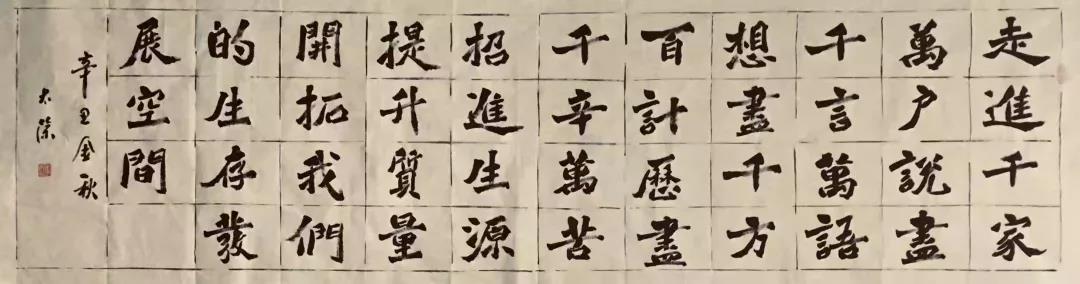 走進千家
萬户説盡
千言萬語
想盡千方
百計歷盡
千辛萬苦
招進生源
提升質量
開拓我們
的生存發
展空間
辛丑金秋